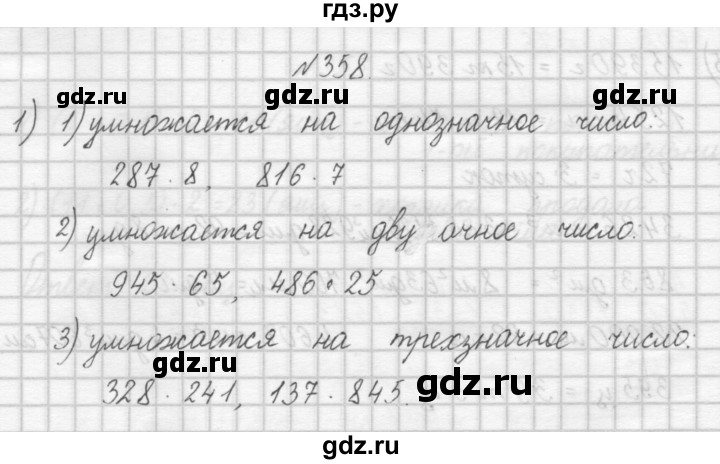 гдз.ру
№358.
gdz.ru gdz.ru
1) 1) умножается на однозначное число:
287·8, 816·7
2) умножается на дву очное число:
945·65, 486·25
3) умножается на трехзначное число:
gdz.ru gdz.ru
328·241, 137·845.
gdz.ru